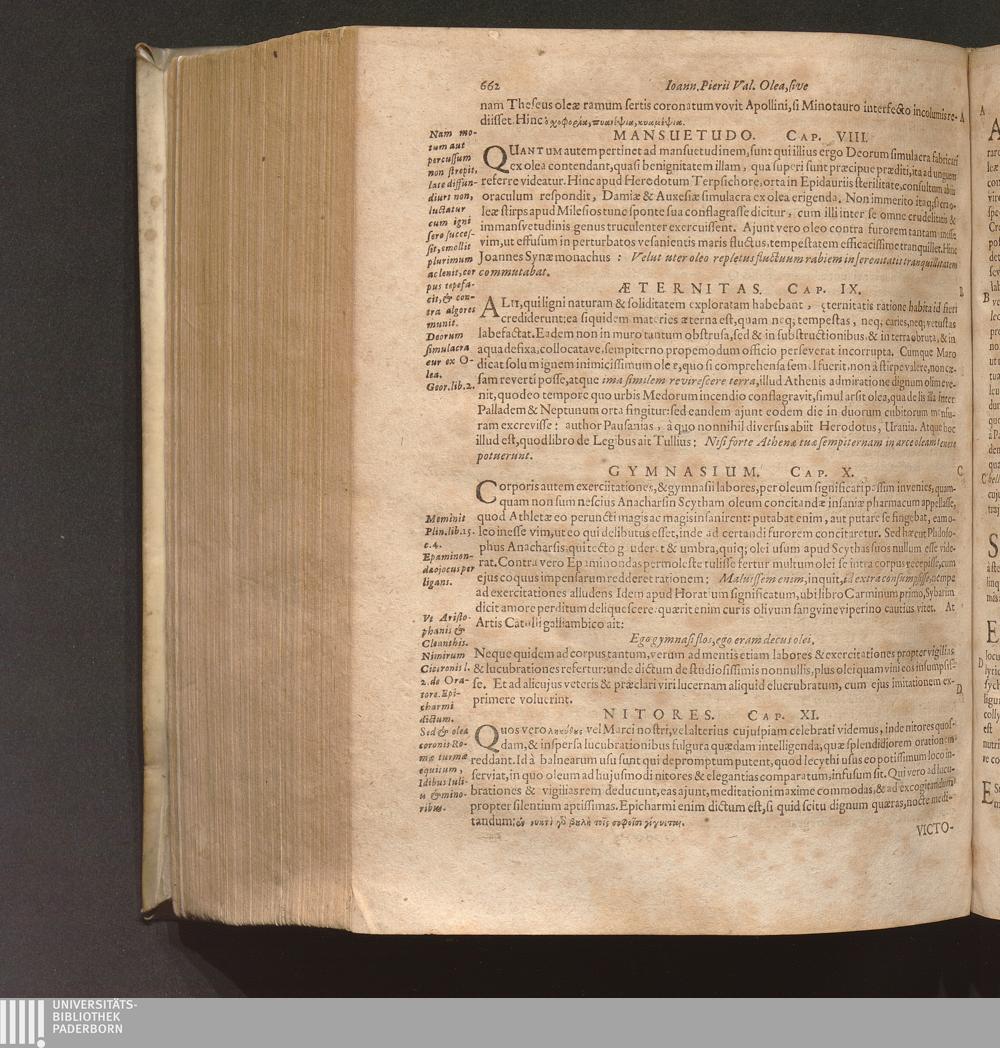 662
Ioann. Pierii Val. Olea, sive
nam Theseus oleæ ramum sertis coronatum vovit Apollini, si Minotauro interfecto incolumis re-
diisset. Hinc
MANSUETUDO. CAP. VIII.
QUANTUM autem pertinet ad mansuetudinem, sunt qui illius ergo Deorum simulacra fabricari
ex olea contendant, quasi benignitatem illam, qua superi sunt præcipue præditi, ita ad unguem
referre videatur. Hinc apud Herodotum Terpsichore, orta in Epidauriis sterilitate, consultum abiis
oraculum respondit, Damiæ & Auxesiæ simulacra ex olea erigenda. Non immerito itaq; si ex o-
leæ stirps apud Milesios tunc sponte sua conflagrasse dicitur, cum illi inter se omne crudelitatis &
immansvetudinis genus truculenter exercuissent. Ajunt vero oleo contra furorem tantam inesse
vim, ut effusum in perturbatos vesanientis maris fluctus, tempestatem efficacissime tranquillet. Hinc
Joannes Synæ monachus : Velut uter oleo repletus fluctuum rabiem in serenitatis tranquillitatem
commutabat.
ÆTERNITAS. CAP. IX.
ALII, qui ligni naturam & soliditatem exploratam habebant, æternitatis ratione habita id fieri
crediderunt: ea siquidem materies æterna est, quam neq; tempestas, neq; caries, neq; vetustas
labefactat. Eadem non in muro tantum obstrusa, sed & in substructionibus & in terra obruta, & in
aqua defixa, collocatave, sempiterno propemodum officio perseverat incorrupta. Cumque Maro
dicat solum ignem inimicissimum oleæ, quo si comprehensa semel fuerit, non à stirpe valere, non cæ-
sam reverti posse, atque ima similem revirescere terra, illud Athenis admiratione dignum olim eve-
nit, quod eo tempore quo urbis Medorum incendio conflagravit, simul arsit olea, qua de lis illa inter
Palladem & Neptunum orta fingitur: sed eandem ajunt eodem die in duorum cubitorum mensu-
ram excrevisse: author Pausanias, à quo nonnihil diversus abiit Herodotus, Urania. Atque hoc
illud est, quod libro de Legibus ait Tullius: Nisi forte Athenæ tuæ sempiternam in arce oleam tenere
potuerunt.
GYMNASIUM. CAP. X.
Corporis autem exerciitationes, & gymnasii labores, per oleum significari passim invenies, quam-
quam non sum nescius Anacharsin Scytham oleum concitandæ insaniæ pharmacum appellasse,
quod Athletæ eo peruncti magis ac magis insanirent: putabat enim, aut putare se fingebat, eam o-
leo inesse vim, ut eo qui delibutus esset, inde ad certandi furorem concitaretur. Sed hæcut Philoso-
phus Anacharsis, qui tecto gauderet & umbra, quiq; olei usum apud Scythas suos nullum esse vide-
rat. Contra vero Epaminondas permoleste tulisse fertur multum olei se intra corpus recepisse, cum
ejus coquus impensarum redderet rationem: Maluissem enim, inquit, id extra consumpsisse, nempe
ad exercitationes alludens Idem apud Horatium significatum, ubi libro Carminum primo, Sybarim
dicit amore perditum deliquescere: quærit enim cur is olivum sangvine viperino cautius vitet. At
Artis Catulli galliambico ait:
Ego gymnasi flos, ego eram decus olei,
Neque quidem ad corpus tantum, verum ad mentis etiam labores & exercitationes propter vigilias
& lucubrationes refertur: unde dictum de studiosissimis nonnullis, plus olei quam vini eos insumpsis-
se. Et ad alicujus veteris & præclari viri lucernam aliquid elucrubratum, cum ejus imitationem ex-
primere voluerint.
NITORES. CAP. XI.
Quos vero ληκύθους vel Marci nostri, vel alterius cujuspiam celebrati videmus, inde nitores quos-
dam, & inspersa lucubrationibus fulgura quædam intelligenda, quæ splendidiorem orationem
reddant. Id à balnearum usu sunt qui depromptum putent, quod lecythi usus eo potissimum loco in-
serviat, in quo oleum ad hujusmodi nitores & elegantias comparatum, infusum sit. Qui vero ad lucu-
brationes & vigilias rem deducunt, eas ajunt, meditationi maxime commodas, & ad excogitandum
propter silentium aptissimas. Epicharmi enim dictum est, si quid scitu dignum quæras, nocte medi-
tandum:
VICTO-
Nam mo-
tum aut
percussum
non strepit,
late diffun-
diur non,
luctatur
cum igni
fero succes-
sit, emollit
plurimum
ac lenit, cor
pus tepefa-
cit, & con-
tra algores
munit.
Deorum
simulacra
eur ex O-
lea.
Geor. lib. 2.
Meminit
Plin. lib. 15.
c. 4.
Epaminon-
dæ jocus per
ligans.
Ut Aristo-
phanis &
Cleanthis.
Nimirum
Ciceronis l.
2. de Ora-
tore. Epi-
charmi
dictum.
Sed & olea
coronis Ro-
mæ turmæ
equitum,
Idibus Iuli-
is & mino-
ribus.
UNIVERSITÄTS-
BIBLIOTHEK
PADERBORN